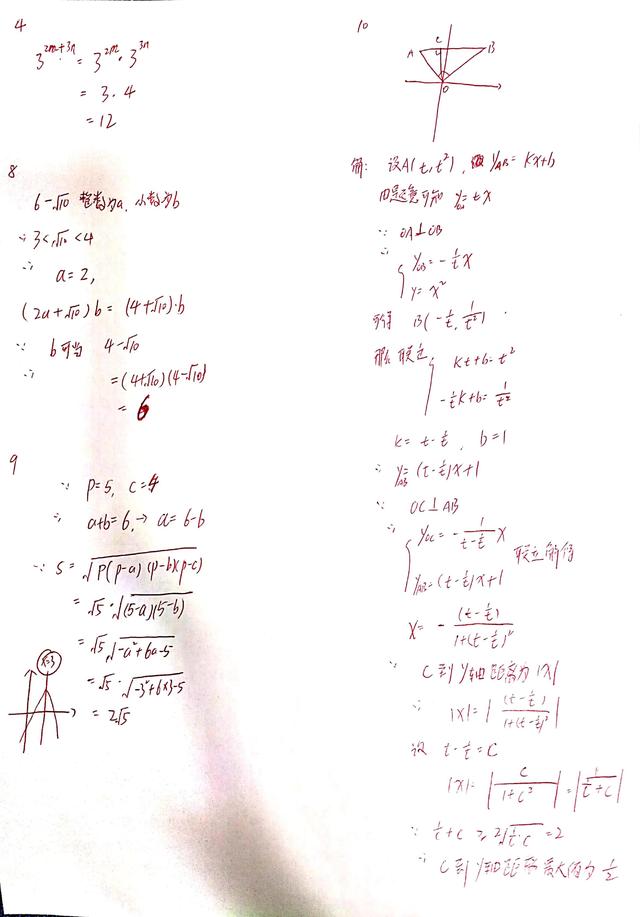 4
3^{2m+3n} = 3^{2m}·3^{3n}
= 3·4
= 12
8
6-√10 整数为a, 小数为b
∵ 3<√10<4
∴ a=2,
(2a+√10)b = (4+√10)·b
∵ b可为 4-√10
∴ =(4+√10)(4-√10)
= 6
9
∵ P=5, C=4
∴ a+b=6, → a=6-b
∵ S=√P(P-a)(P-b)(P-c)
= √5·√(5-a)(5-b)
= √5·√-a²+6a-5
= √5·√-3²+6×3-5
= 2√5
x=3
10
A C B
O
解: 设A(t, t²), y_{AB}=kx+b
由题意可知 y=tx
∵ OA⊥OB
∴ { y_{OB}=-1/t x
y=x²
可得 B(-1/t, 1/t²)
联立 { kt+b=t²
-1/t k+b=1/t²
k=t-1/t, b=1
∴ y_{AB}=(t-1/t)x+1
∵ OC⊥AB
∴ { y_{OC}=-1/(t-1/t) x
y_{AB}=(t-1/t)x+1 联立解得
x=-(t-1/t)/(1+(t-1/t)²)
∵ C到y轴距离为|x|
∴ |x|=|(t-1/t)/(1+(t-1/t)²)|
设 t-1/t=C
|x|=|C/(1+C²)|=|1/(1/C+C)|
∵ 1/C+C≥2√1/C·C=2
∴ C到y轴距离最大值为1/2